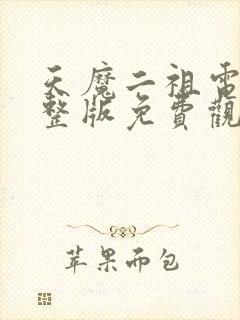 天魔二祖電
整版免費觀
苹果而包